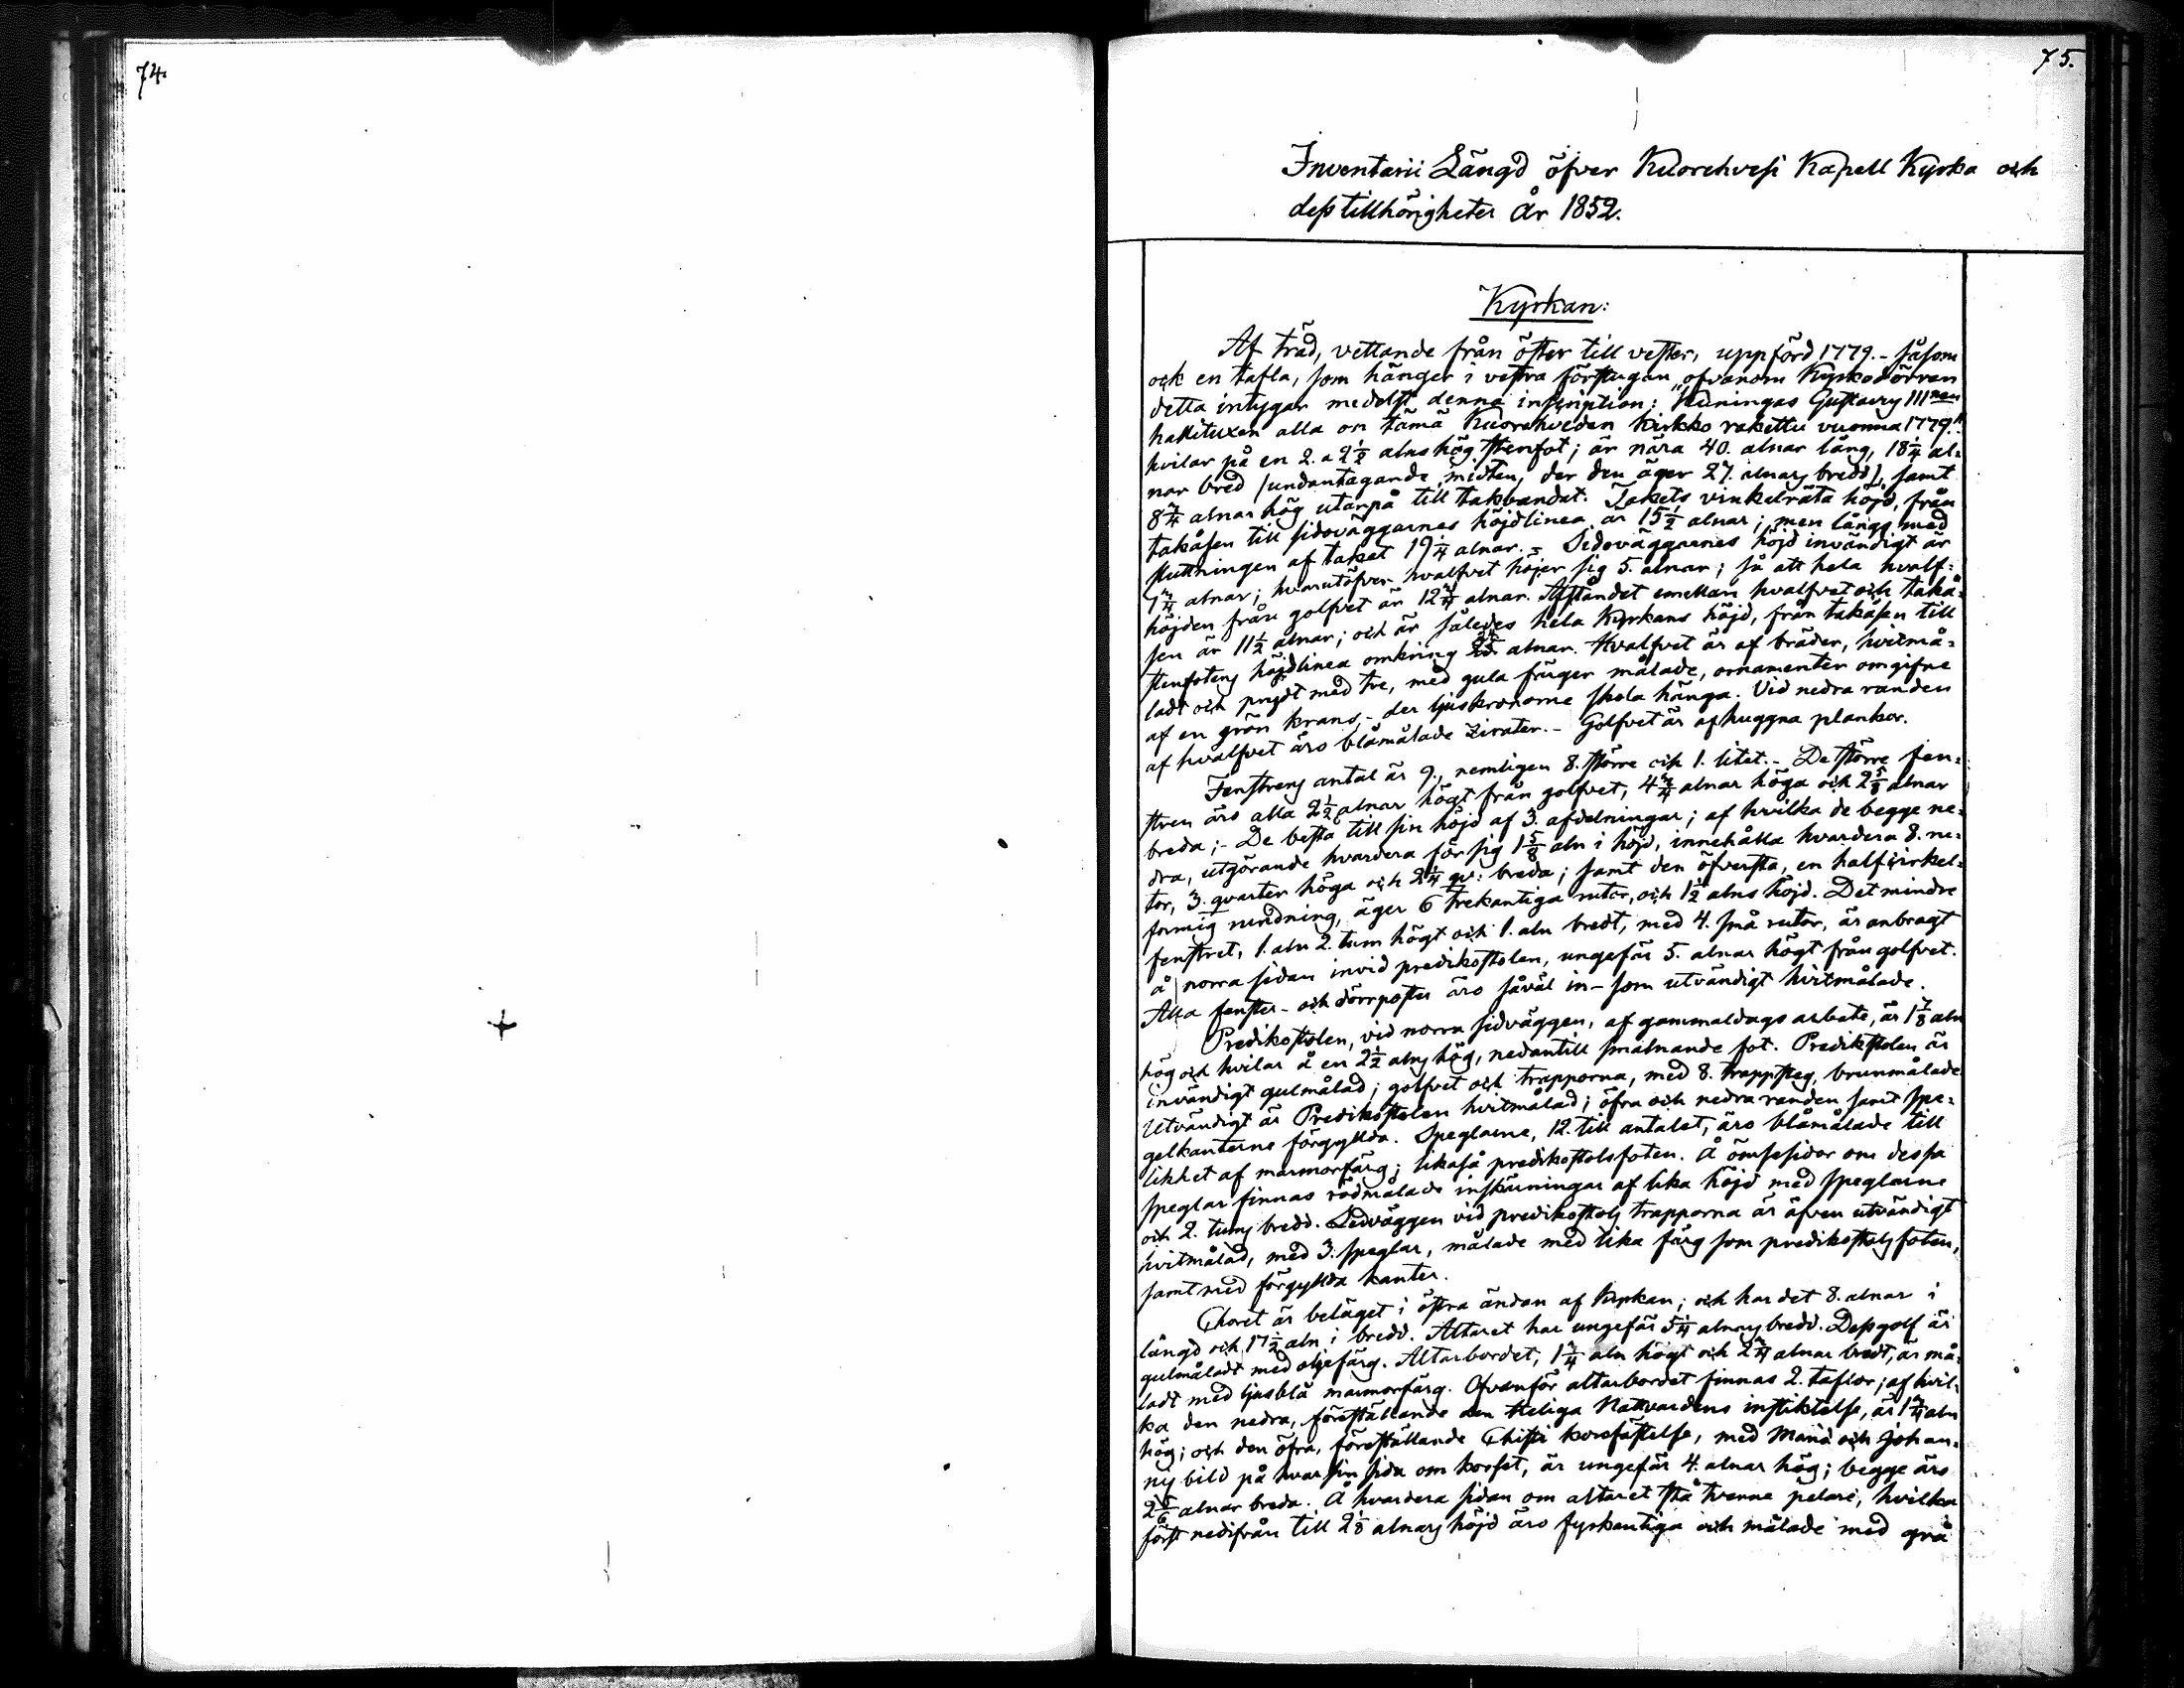 74.
75.
Inventarii Längd öfver Kuorehvesi Kapell Kyrka och
dess tillhörigheter År 1852.
Kyrkan:
Af träd, vettande från öster till vester, uppförd 1779. - såsom
ock en tafla, som hänger i vestra förstugan „ofvanom Kyrkodörren
detta intygar medelst denna inscription: Kuningas Gustavus III nen
hallituxen alla on tämä Kuorehveden Kirkko rakettu vuonna 1779."
hvilar på en 2. a 2½ alns hög stenfot; är nära 40. alnar lång, 18¼ al-
nar bred /undantagande midten, der den äger 27. alnars bredd/, samt
8¾ alnar hög utanpå till takbandet. Takets vinkelräta höjd, från
takåsen till sidoväggarnes höjdlinea är 15½ alnar; men längs med
sluttningen af taket 19¼ alnar. = Sidoväggarnes höjd invändigt är
7¾ alnar; hvarutöfver hvalfvet höjer sig 5. alnar; så att hela hvalf-
höjden från golfvet är 12¾ alnar. Afståndet emellan hvalfvet och takå-
sen är 11½ alnar; och är således hela Kyrkans höjd, från takåsen till
stenfotens höjdlinea omkring alnar. Hvalfvet är af bräder, hvitmå-
ladt och prydt med tre, med gula färger målade, ornamenter omgifne
af en grön krans, - der ljuskronorne skola hänga. Vid nedra randen
af hvalfvet äro blåmålade Zirater. - Golfvet är af huggna plankor.
Fenstrens antal är 9., nemligen 8. större och 1. litet. - De större fen-
stren äro alla 2½ alnar högt från golfvet, 4¾ alnar höga och 2⅝ alnar
breda; - De bestå till sin höjd af 3. afdelningar; af hvilka de begge ne-
dra, utgörande hvardera för sig 1⅝ aln i höjd, innehålla hvardera 8. ru-
tor, 3. qvarter höga och 2¼ qv: breda; samt den öfversta, en halfcirkel-
formig rundning, äger 6 trekantiga rutor, och 1½ alns höjd. Det mindre
fenstret, 1. aln 2. tum högt och 1. aln bredt, med 4. små rutor, är anbragt
å norra sidan invid predikostolen, ungefär 5. alnar högt från golfvet.
Alla fenster- och dörrposter äro såväl in- som utvändigt hvitmålade.
Predikostolen, vid norra sidväggen, af gammaldags arbete, är 1⅞ aln
hög och hvilar å en 2½ alns hög, nedantill smalnande fot. Predikstolen är
invändigt gulmålad; golfvet och trapporna, med 8. trappsteg, brunmålade
Utvändigt är Predikostolen hvitmålad; öfra och nedra randen samt spe-
gelkanterne förgyllda. Speglarne, 12. till antalet, äro blåmålade till
likhet af marmorfärg; likaså predikostolsfoten. Å ömse sidor om dessa
speglar finnas rödmålade inskärningar af lika höjd med speglarne
och 2. tums bredd. Ledväggen vid predikostols trapporna är äfven utvändigt
hvitmålad, med 3. speglar, målade med lika färg som predikostols foten,
samt med förgyllda kanter.
Choret är beläget i östra ändan af Kyrkan; och har det 8. alnar i
längd och 17½ aln i bredd. Altaret har ungefär 5¼ alnars bredd. Dess golf är
gulmåladt med oljefärg. Altarbordet, 1¾ aln högt och 2¾ alnar bredt, är må-
ladt med ljusblå marmorfärg. Ofvanför altarbordet finnas 2. taflor; af hvil-
ka den nedra, föreställande den Heliga Nattvardens instiktelse, är 1¾ aln
hög; och den öfra, föreställande Christi korsfästelse, med Maria och Johan-
nis bild på hvar sin sida om korset, är ungefär 4. alnar hög; begge äro
2⅚ alnar breda. Å hvardera sidan om altaret stå tvenne pelare, hvilka
först nedifrån till 2⅛ alnars höjd äro fyrkantiga och målade med grå